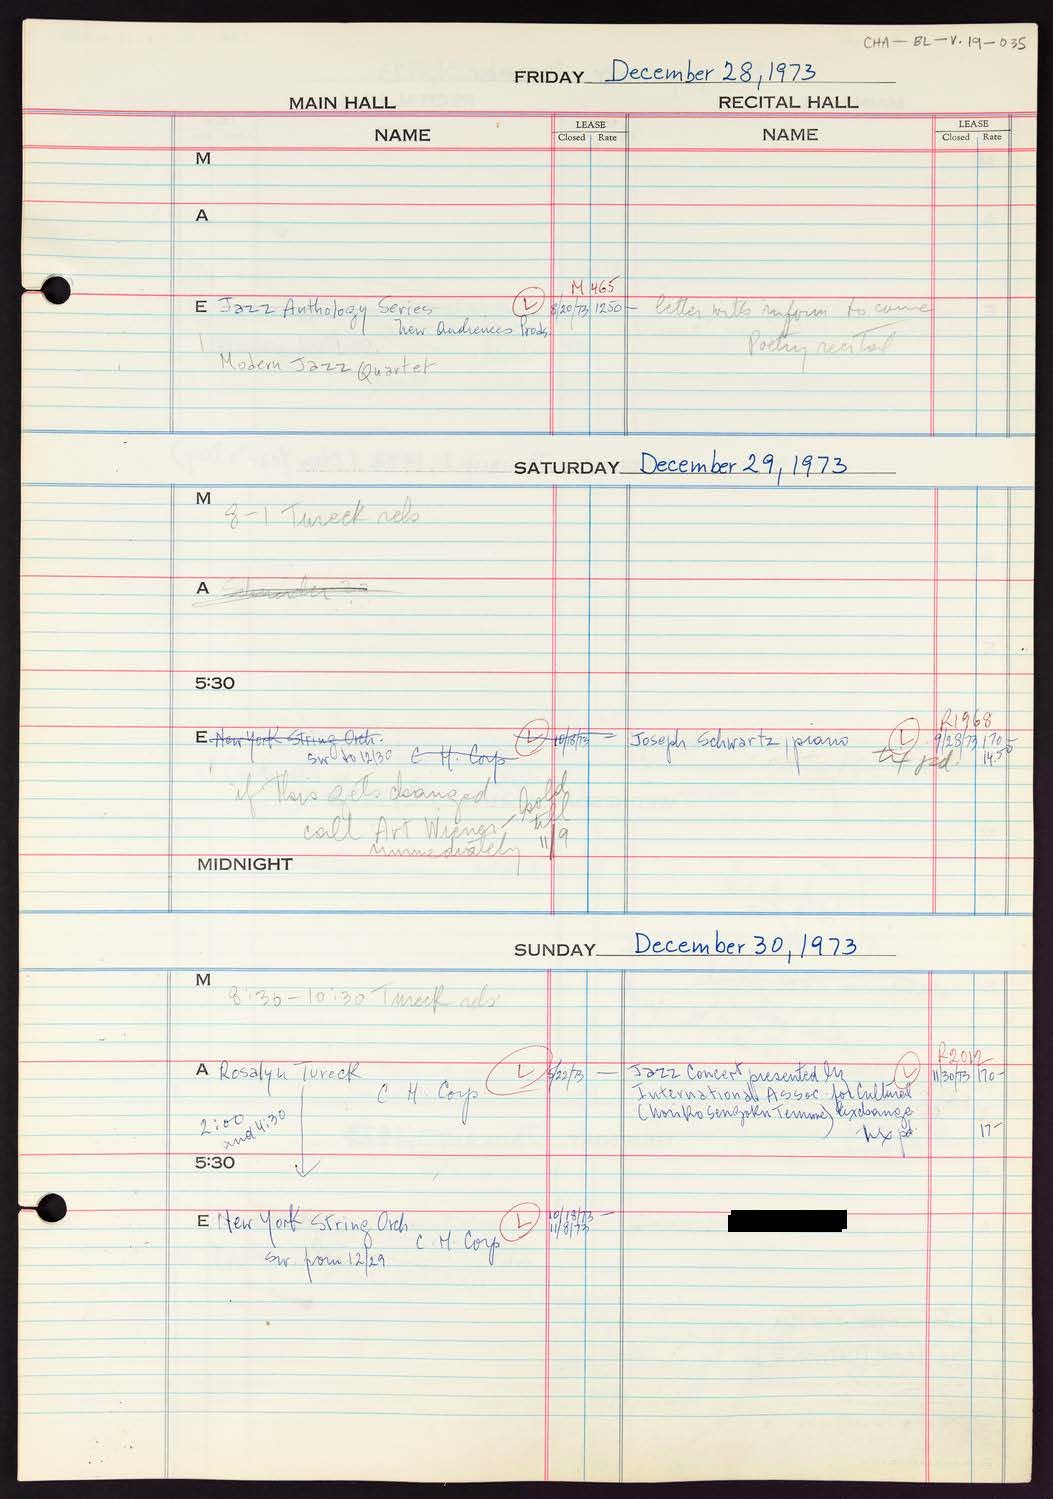 CHA-BL-V.19-035
FRIDAY December 28, 1973
MAIN HALL
RECITAL HALL
NAME
LEASE
Closed Rate
NAME
LEASE
Closed Rate
M
A
M 465
E Jazz Anthology Series L 8/20/73 1250- letter with inform to come
New Audiences Prods.
Poetry recital
Modern Jazz Quartet
SATURDAY December 29, 1973
M
8-1 Tureck rehs
A Schneider
5:30
R1968
E New York String Orch. L 10/18/73 - Joseph Schwartz, piano L 9/28/73 170-
Sw to 12/30 C H Corp
pd. 14.50
if this gets changed
hold
call Art Wiener
till
immediately
11/9
MIDNIGHT
SUNDAY December 30, 1973
M
8:30-10:30 Tureck rehs
R2012
A Rosalyn Tureck L 5/22/73 - Jazz Concert presented by L 11/30/73 170-
C H Corp
International Assoc. for Cultural
2:00
and 4:30
Exchange
pd. 17-
5:30
E New York String Orch L 10/18/73 -
11/8/73
C. H. Corp
Sw. from 12/29